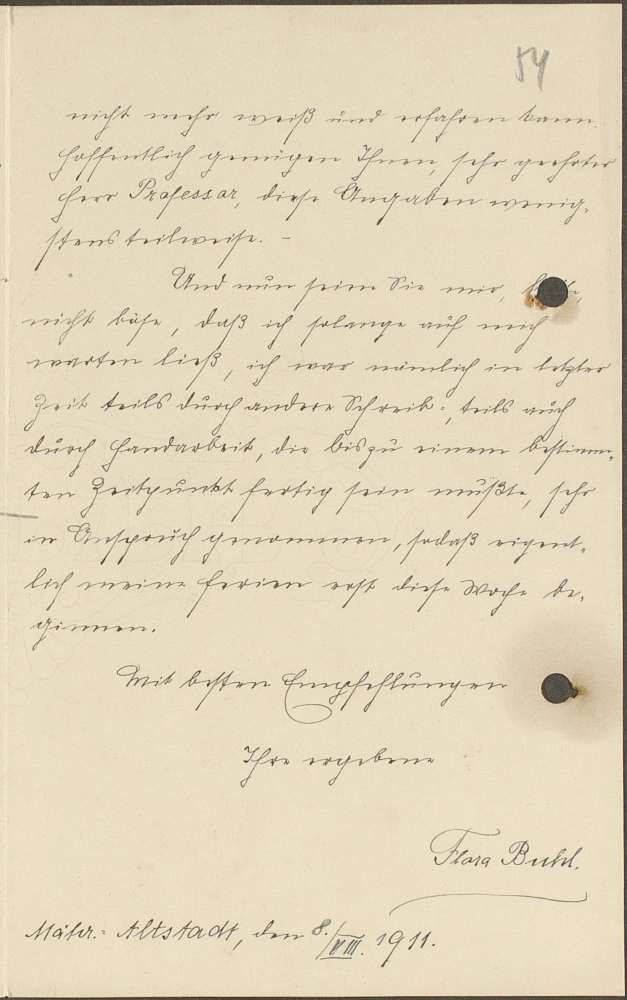 54
nicht mehr weiß und erfahren kann.
Hoffentlich genügen Ihnen, sehr geehrter
Herr Professor, diese Angaben wenig-
stens teilweise. –
Und nun seien Sie mir, bitte,
nicht böse, daß ich solange auf mich
warten ließ, ich war nämlich in letzter
Zeit teils durch andere Schreib-, teils auch
durch Handarbeit, die bis zu einem bestimm-
ten Zeitpunkt fertig sein mußte, sehr
in Anspruch genommen, sodaß eigent-
lich meine Ferien erst diese Woche be-
ginnen.
Mit besten Empfehlungen
Ihre ergebene
Flora Buhl.
Mähr.-Altstadt, den 8./VIII. 1911.